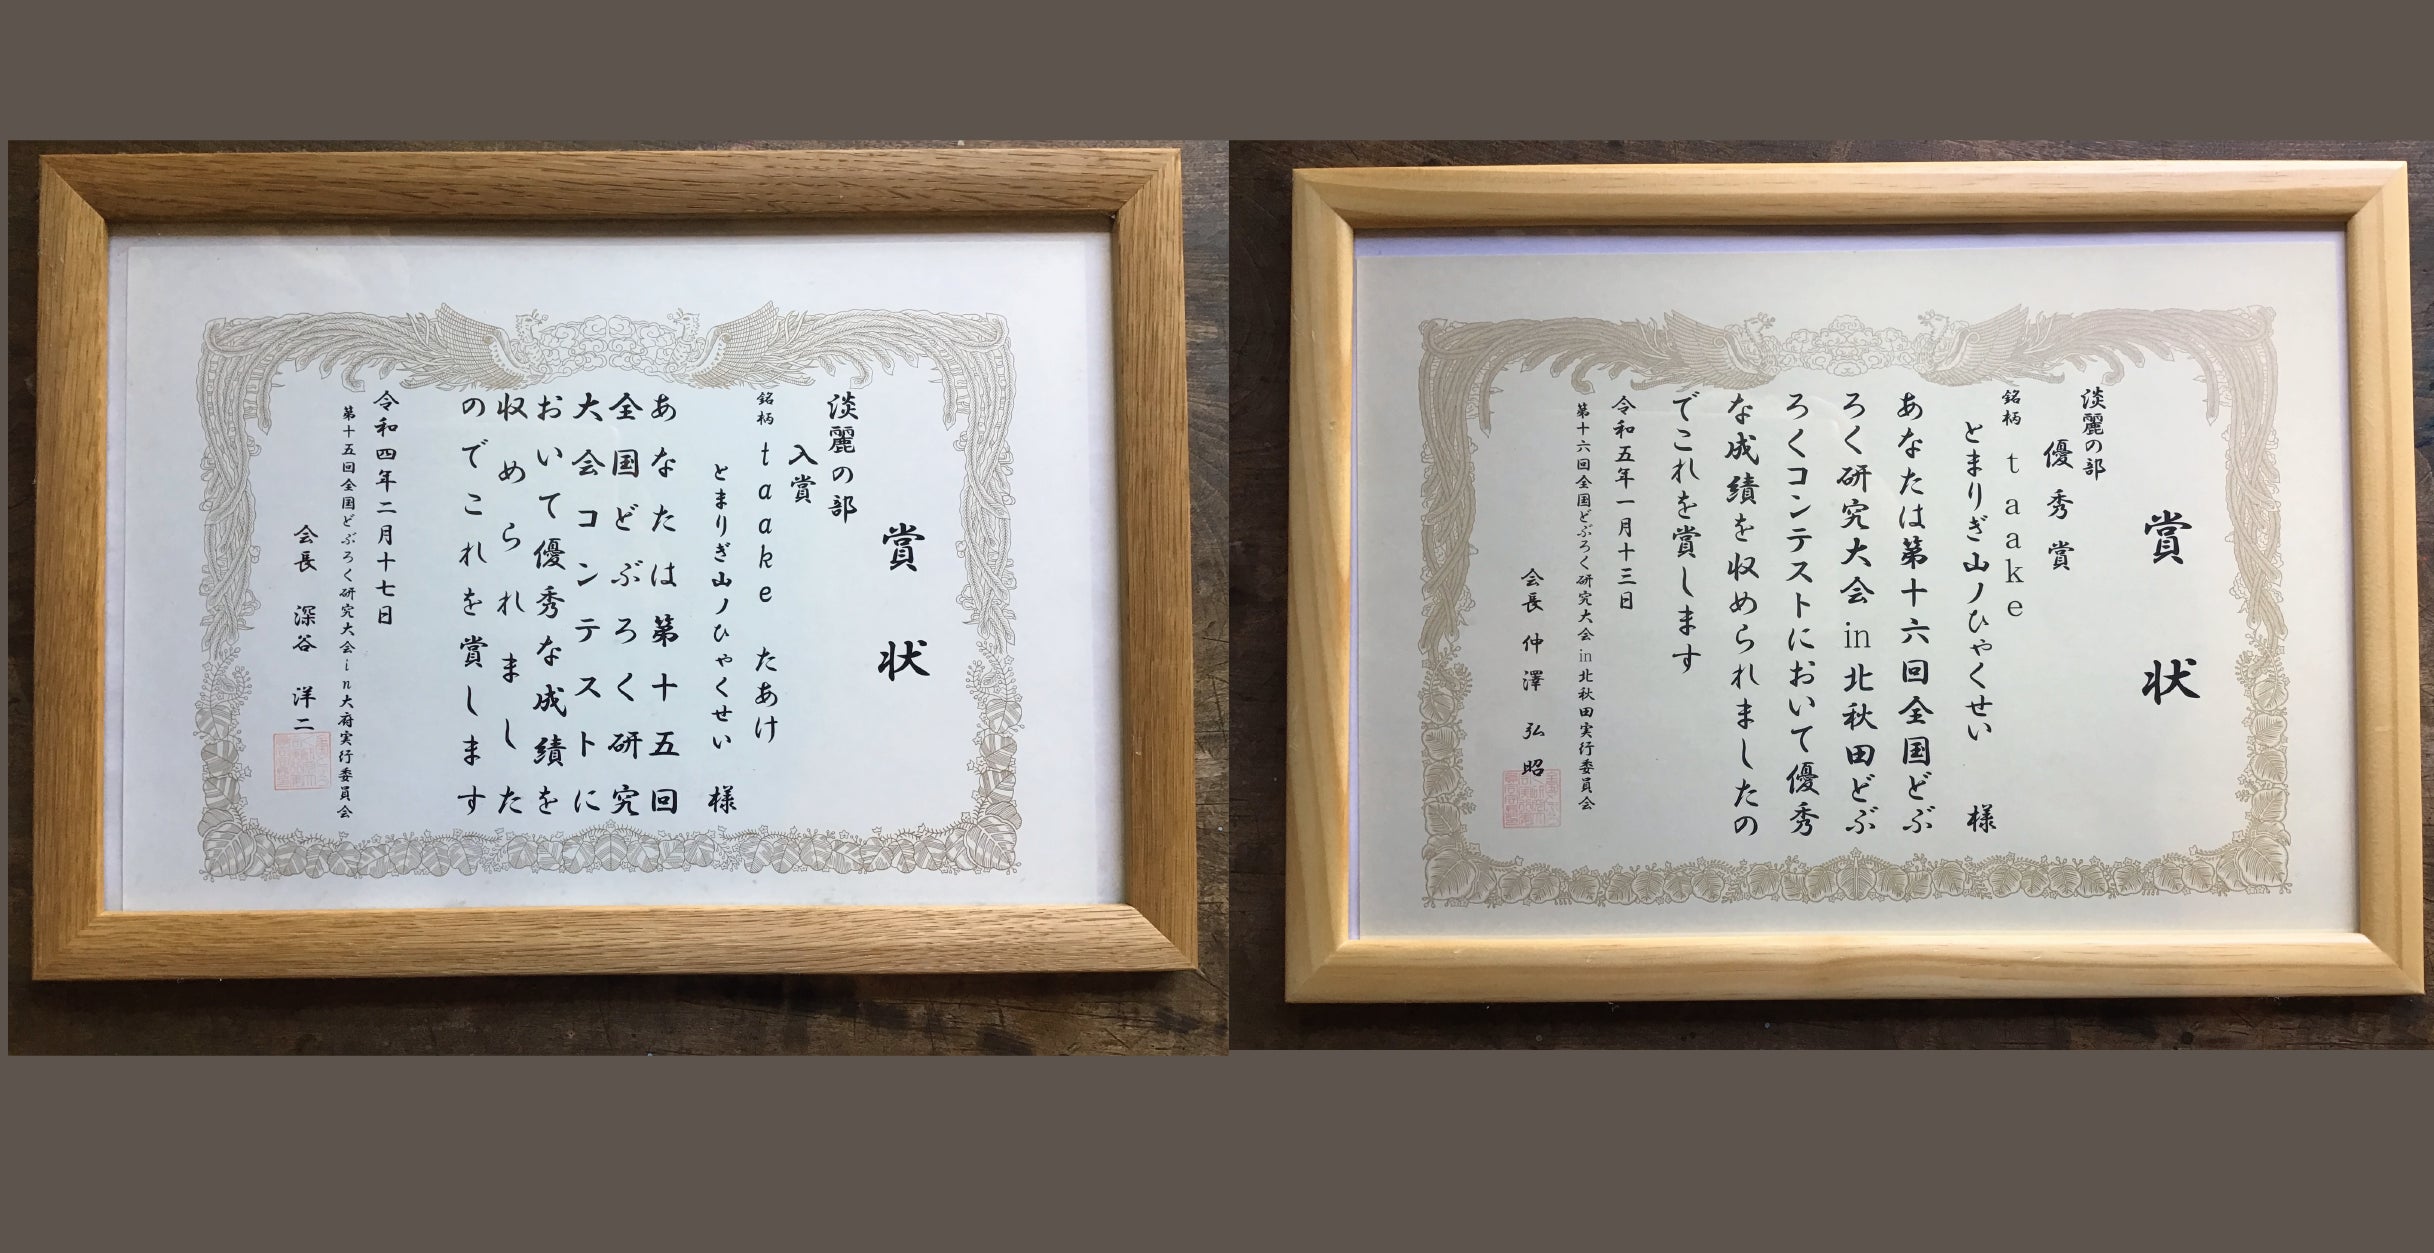 賞状
淡麗の部
入賞
銘柄 taake たあけ
とまりぎ山ノひゃくせい 様
あなたは第十五回
全国どぶろく研究
大会コンテストに
おいて優秀な成績を
収められました
のでこれを賞します
令和四年二月十七日
第十五回全国どぶろく研究大会in大府実行委員会
会長 深谷 洋二
賞状
淡麗の部
優秀賞
銘柄 taake
とまりぎ山ノひゃくせい 様
あなたは第十六回全国どぶ
ろく研究大会in北秋田どぶ
ろくコンテストにおいて優秀
な成績を収められましたの
でこれを賞します
令和五年一月十三日
第十六回全国どぶろく研究大会in北秋田実行委員会
会長 仲澤 弘昭